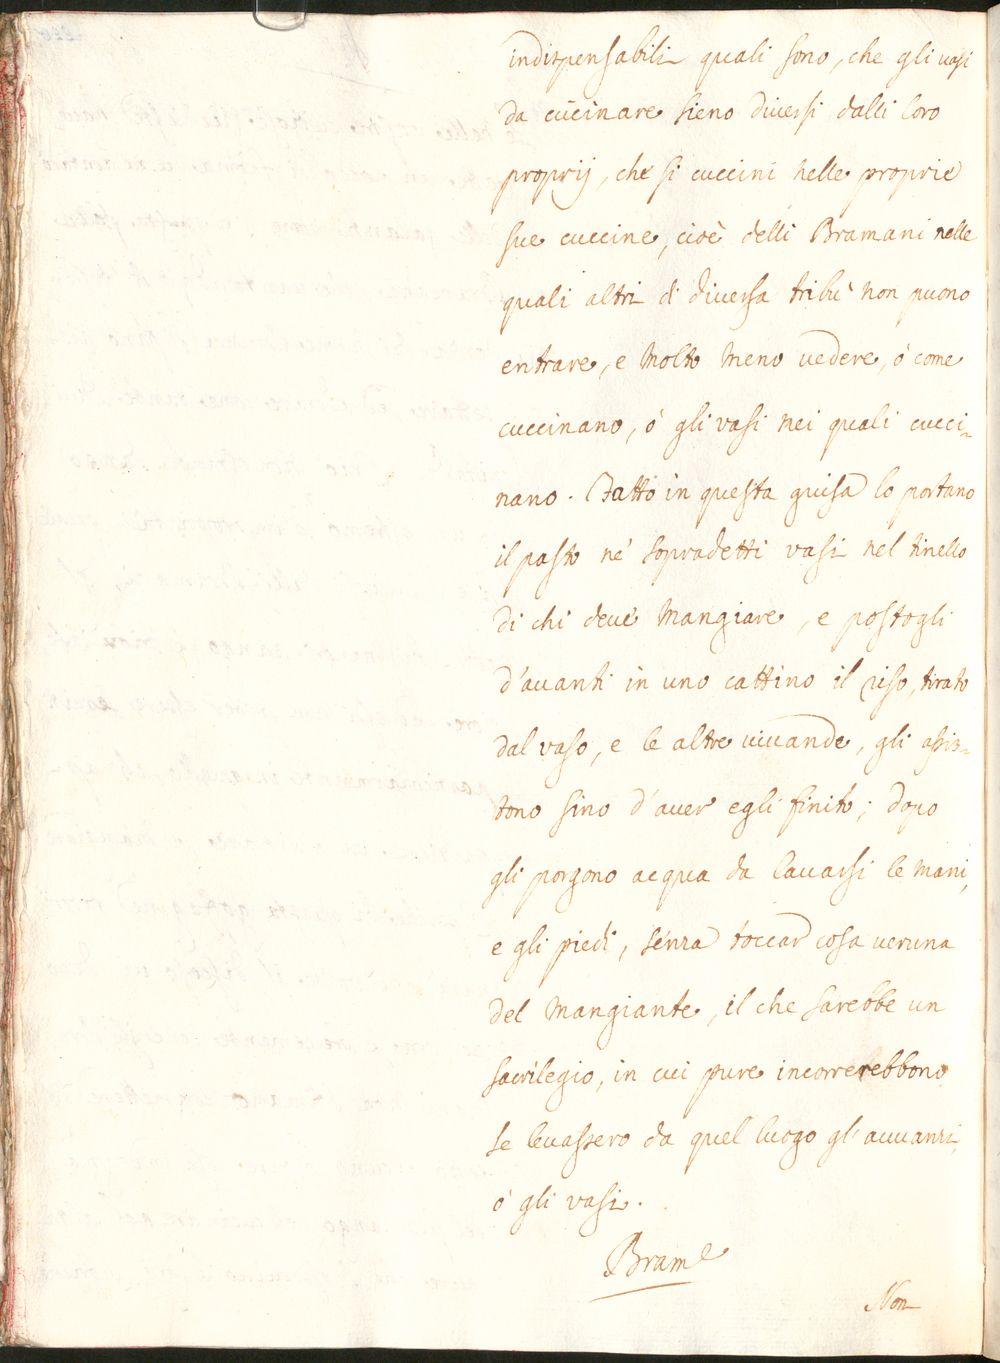 indispensabili quali sono, che gli vasi
da cucinare sieno diversi dalli loro
proprij, che si cuccini nelle proprie
sue cuccine, cioè delli Bramani nelle
quali altri di diversa tribù non puono
entrare, e molto meno vedere, ò come
cuccinano, ò gli vasi nei quali cucci-
nano. Fatto in questa guisa lo portano
il pasto ne' sopradetti vasi nel tinello
di chi deve mangiare, e postogli
d'avanti in uno cattino il riso, tirato
dal vaso, e le altre vivande, gli assis-
tono sino d'aver egli finito; dopo
gli porgono acqua da lavarsi le mani,
e gli piedi, senza toccar cosa veruna
del mangiante, il che sarebbe un
sacrilegio, in cui pure incorrerebbono
se levassero da quel luogo gl'avvanzi,
ò gli vasi.
Bram.e
Non